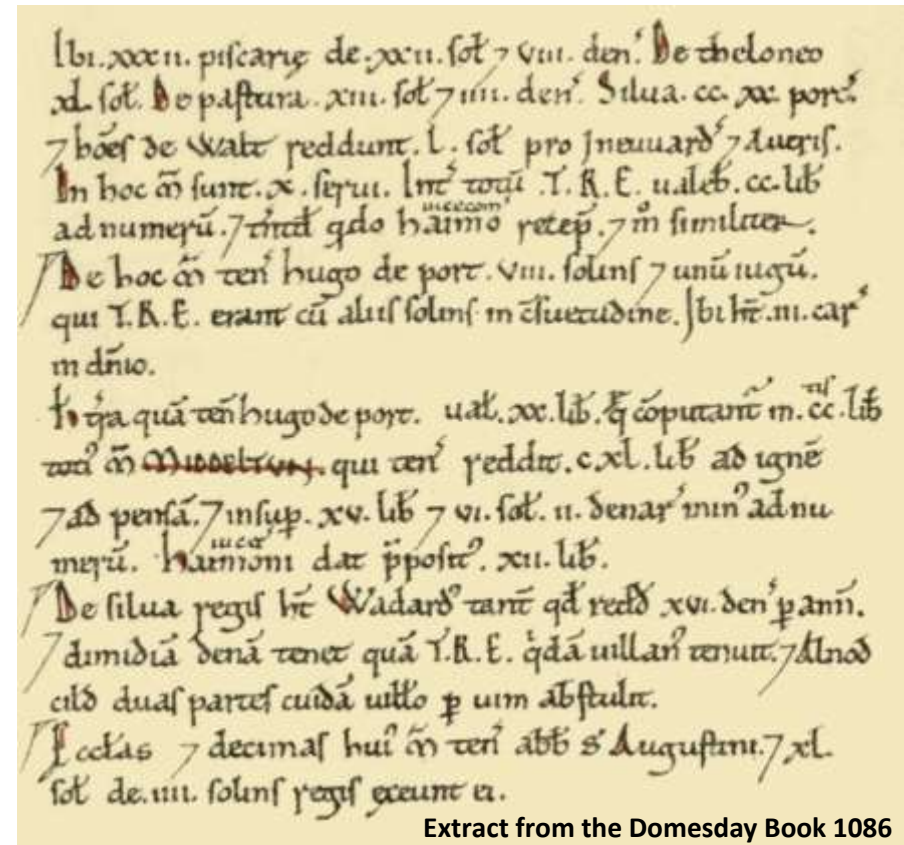 Ibi .xxxii. piscarię de .xxii. sol̃ ⁊ viii. den̄. De theloneo
.xl. sol̃. De pastura .xiii. sol̃ ⁊ iiii. den̄. Silua .cc. xx. porc̄.
⁊ hões de Walt reddunt .l. sol̃ pro Ineuuard̄ ⁊ Aueris.
In hoc m̃ sunt .x. serui. Int̃ totũ .T.R.E. ualeb̃ .cc. lib̃
ad numerũ. ⁊ tñtd̃ qdo haimo uicecom̃ recep̃. ⁊ m̊ similiter.
De hoc m̃ ten̄ hugo de port .viii. solins ⁊ unũ iugũ.
qui T.R.E. erant cũ aliis solins in c̃suetudine. Ibi ht̃ .iii. car̄
in dñio.
H̃ t̃ra quã ten̄ hugo de port. ual̃ .xx. lib̃. q̃ cõputant̃ in .cc. tis lib̃
toti⁹ m̃ MIDDELTUN. qui ten̄ reddit .c.xl. lib̃ ad ignẽ
⁊ ad pensã. ⁊ insup̃ .xv. lib̃ ⁊ vi. sol̃ .ii. denar̄ min⁹ ad nu
merũ. Haimoni uicec̃ dat p̃posit⁹ .xii. lib̃.
De silua regis ht̃ Wadard⁹ tant̃ qđ redđ xvi. den̄ p̱ ann̄.
⁊ dimidiã denã tenet quã T.R.E. q̇dã uillan⁹ tenuit. ⁊ Alnod
cild duas partes cuidã uilło p̱ uim abstulit.
Ecclas ⁊ decimas hui⁹ m̃ ten̄ abb̃ S̃ Augustini. ⁊ xl.
sol̃ de .iiii. solins regis exeunt ei.
Extract from the Domesday Book 1086